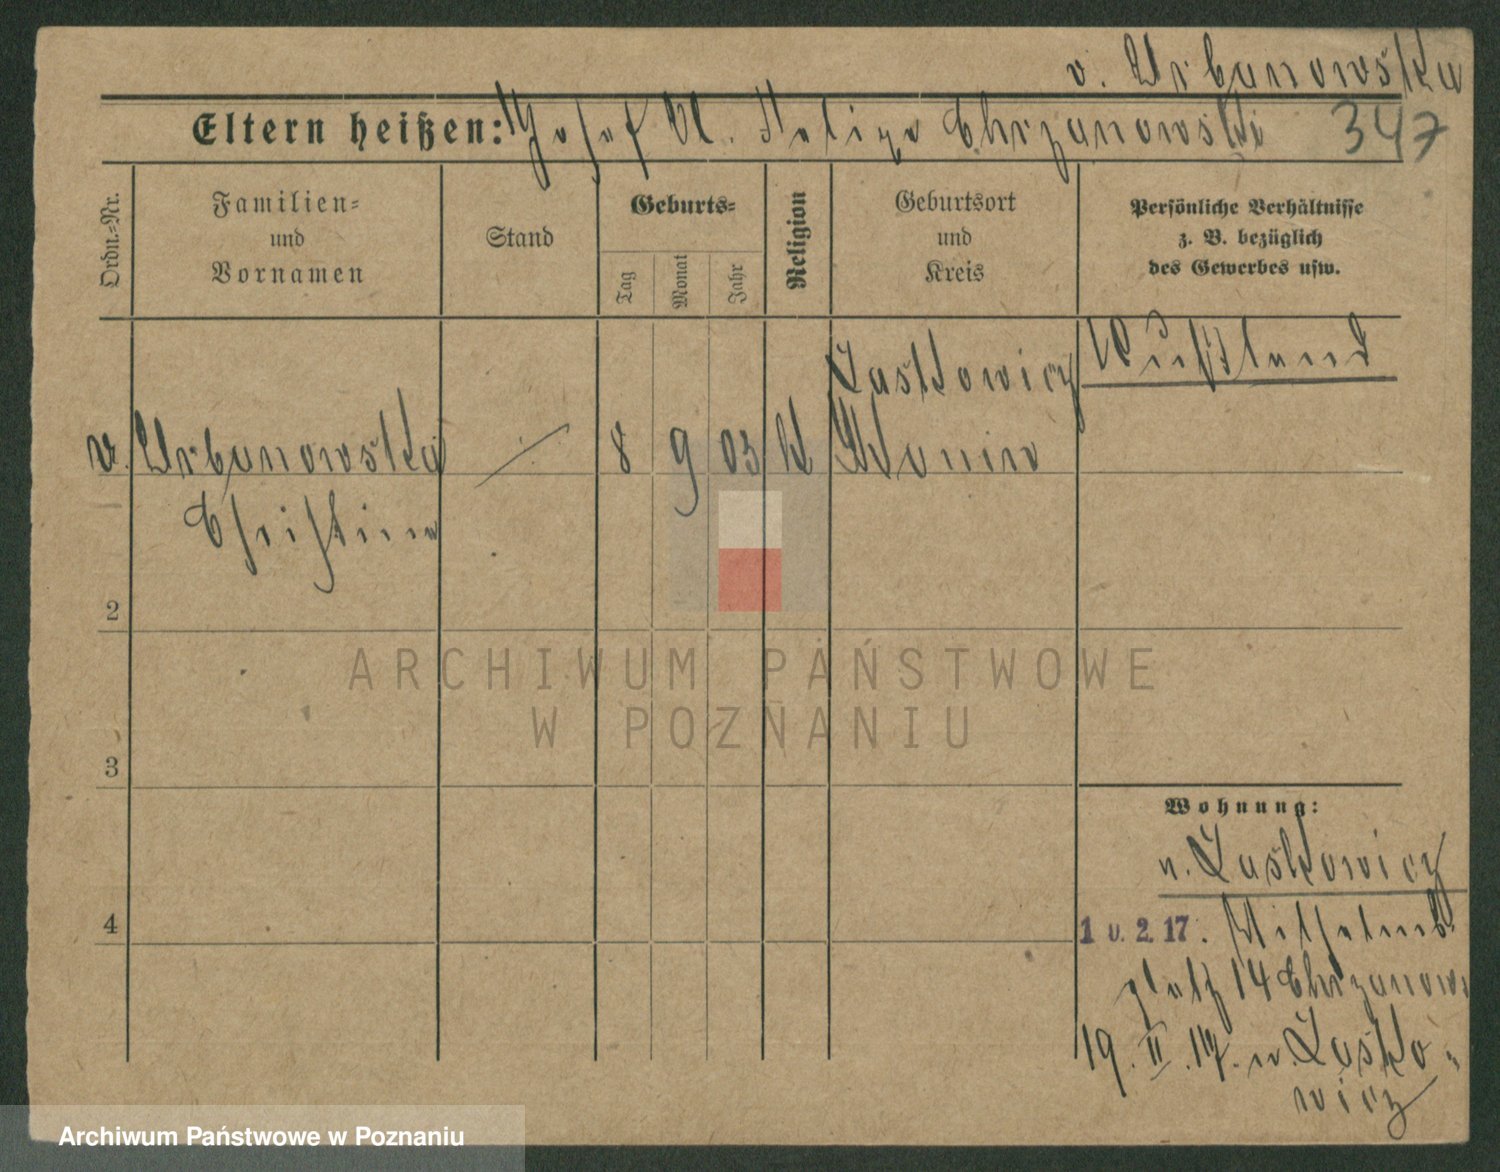 v. Urbanowska
Eltern heißen: Josef u. Feliza Chrzanowski 347
Ordn.-Nr.
Familien-
und
Vornamen
Stand
Geburts-
Tag
Monat
Jahr
Religion
Geburtsort
und
Kreis
Persönliche Verhältnisse
z. B. bezüglich
des Gewerbes usw.
Laskowicz Rußland
v. Urbanowska / 8 9 03 k Konin
Christine
2
ARCHIWUM PAŃSTWOWE
W POZNANIU
3
Wohnung:
n. Laskowicz
4
1 0. 2. 17. Wilhelms
platz 14 Chrzanows
19. II. 17. n. Lasko-
wicz
Archiwum Państwowe w Poznaniu